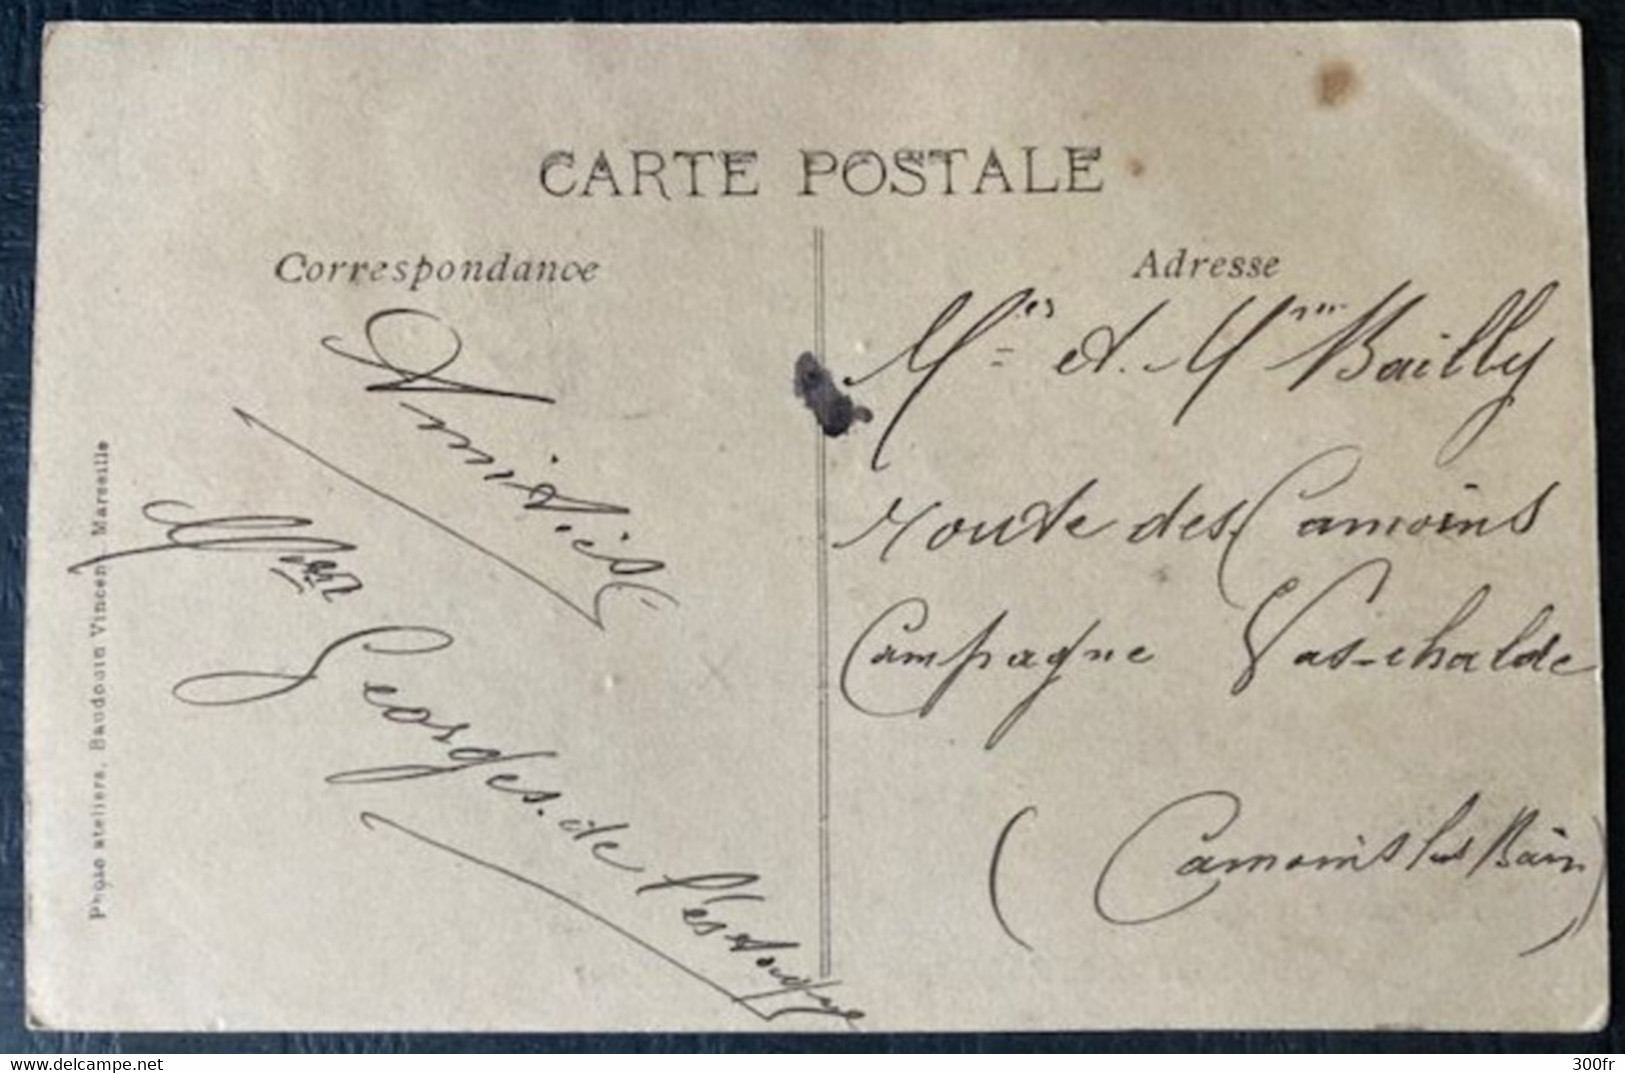 CARTE POSTALE
Correspondance
Amitiés
Georges. de l'estaque
Photo ateliers, Baudouin Vincent Marseille
Adresse
et. Mme Bailly
route des Camoins
Campagne Vas-chalde
(Camoins les Bain)
300fr